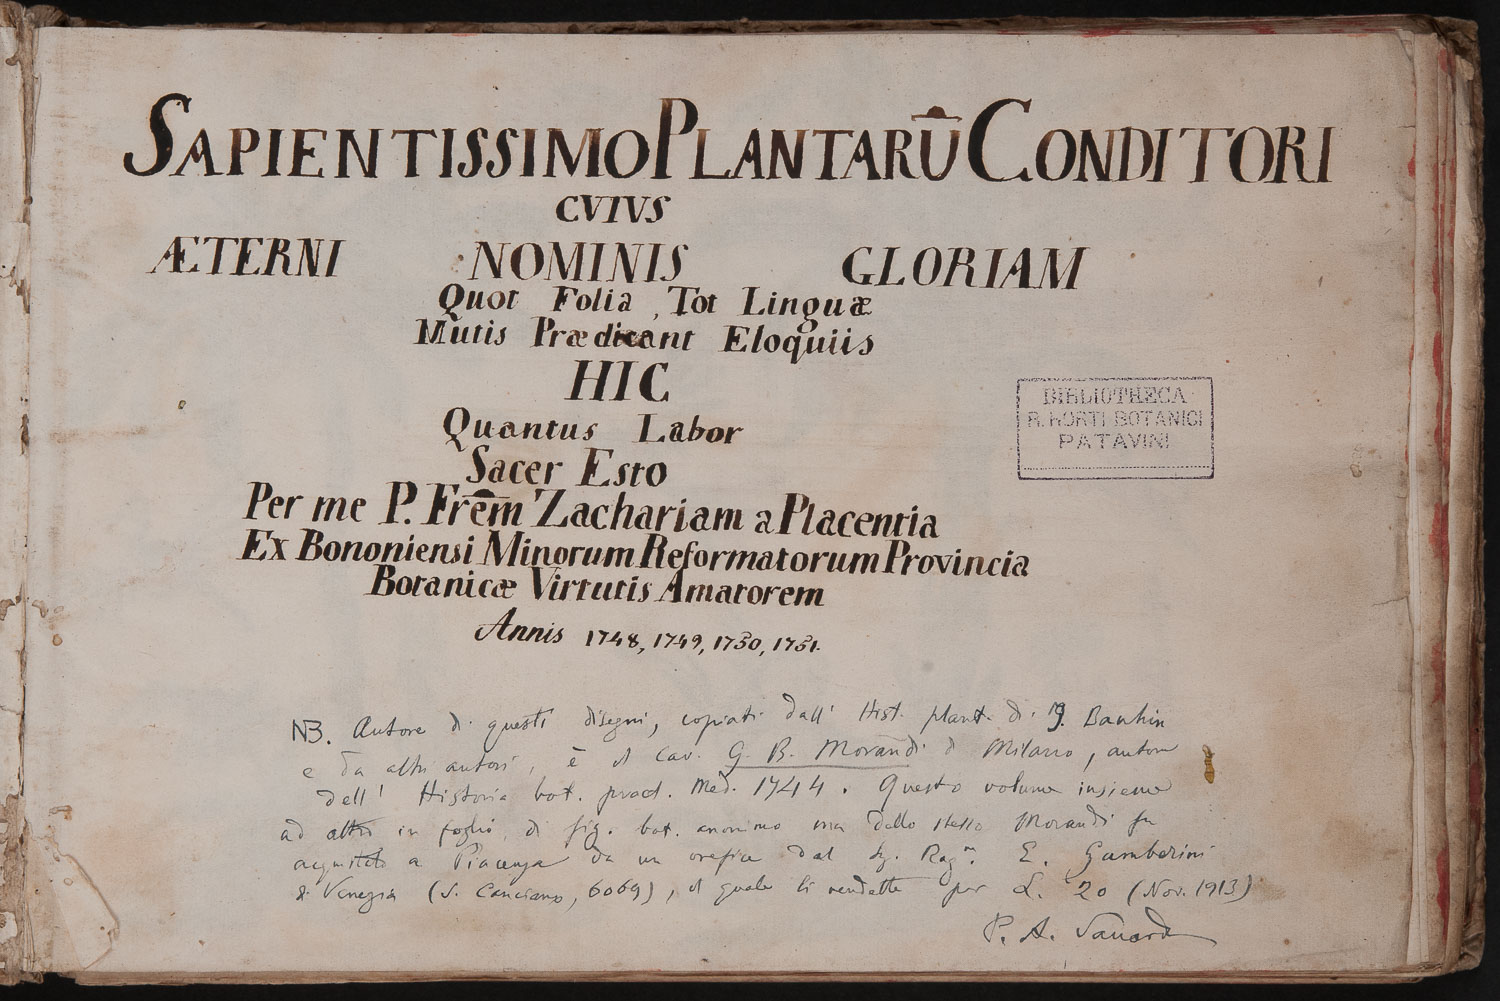 SAPIENTISSIMO PLANTARŪ CONDITORI
CVIVS
ÆTERNI NOMINIS GLORIAM
Quot Folia, Tot Linguæ
Mutis Prædicant Eloquiis
HIC
Quantus Labor
Sacer Esto
Per me P. Frēm Zachariam a Placentia
Ex Bononiensi Minorum Reformatorum Provincia
Botanicæ Virtutis Amatorem
Annis 1748, 1749, 1750, 1751.
BIBLIOTHECA
R. HORTI BOTANICI
PATAVINI
NB. Autore di questi disegni, copiati dall' Hist. plant. di Bauhin
e da altri autori, è il cav. G. B. Morandi di Milano, autore
dell' Historia bot. pract. Med. 1744. Questo volume insieme
ad altro in foglio di fig. bot. anonimo ma dello stesso Morandi fu
acquistato a Piacenza da un orefice dal Sg. Rag.r E. Gamberini
di Venezia (S. Canciano, 6069), il quale li vendette per L. 20 (Nov. 1913)
P. A. Saccardo